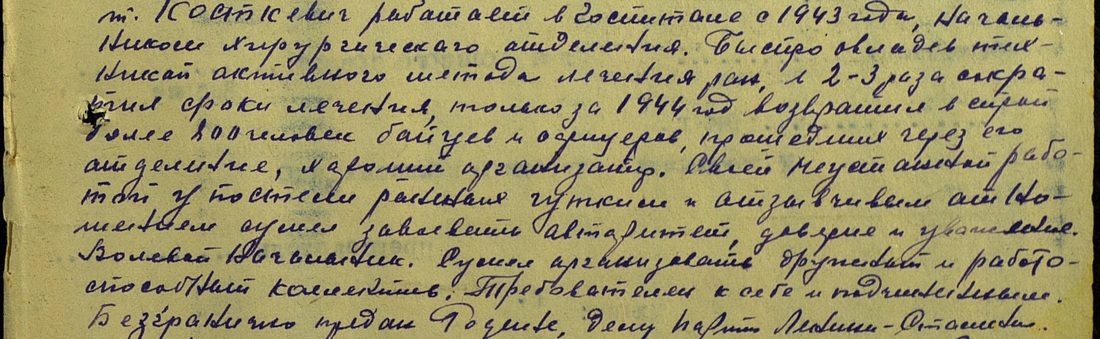 т. Косткевич работает в госпитале с 1943 года, началь-
ником хирургического отделения. Быстро овладев тех-
никой активного метода лечения ран, в 2-3 раза сокра-
тил сроки лечения, только за 1944 год возвратил в строй
более 800 человек бойцев и офицеров, прошедших через его
отделение, хороший организатр. Своей неустанной рабо-
той у постели раненых чутким и отзывчивым отно-
шением сумел завоевать авторитет, доверие и уважение.
Волевой начальник. Сумел организовать дружный и работо-
способный коллектив. Требователен к себе и подчиненным.
Безгранично предан Родине, делу партии Ленина-Сталина.